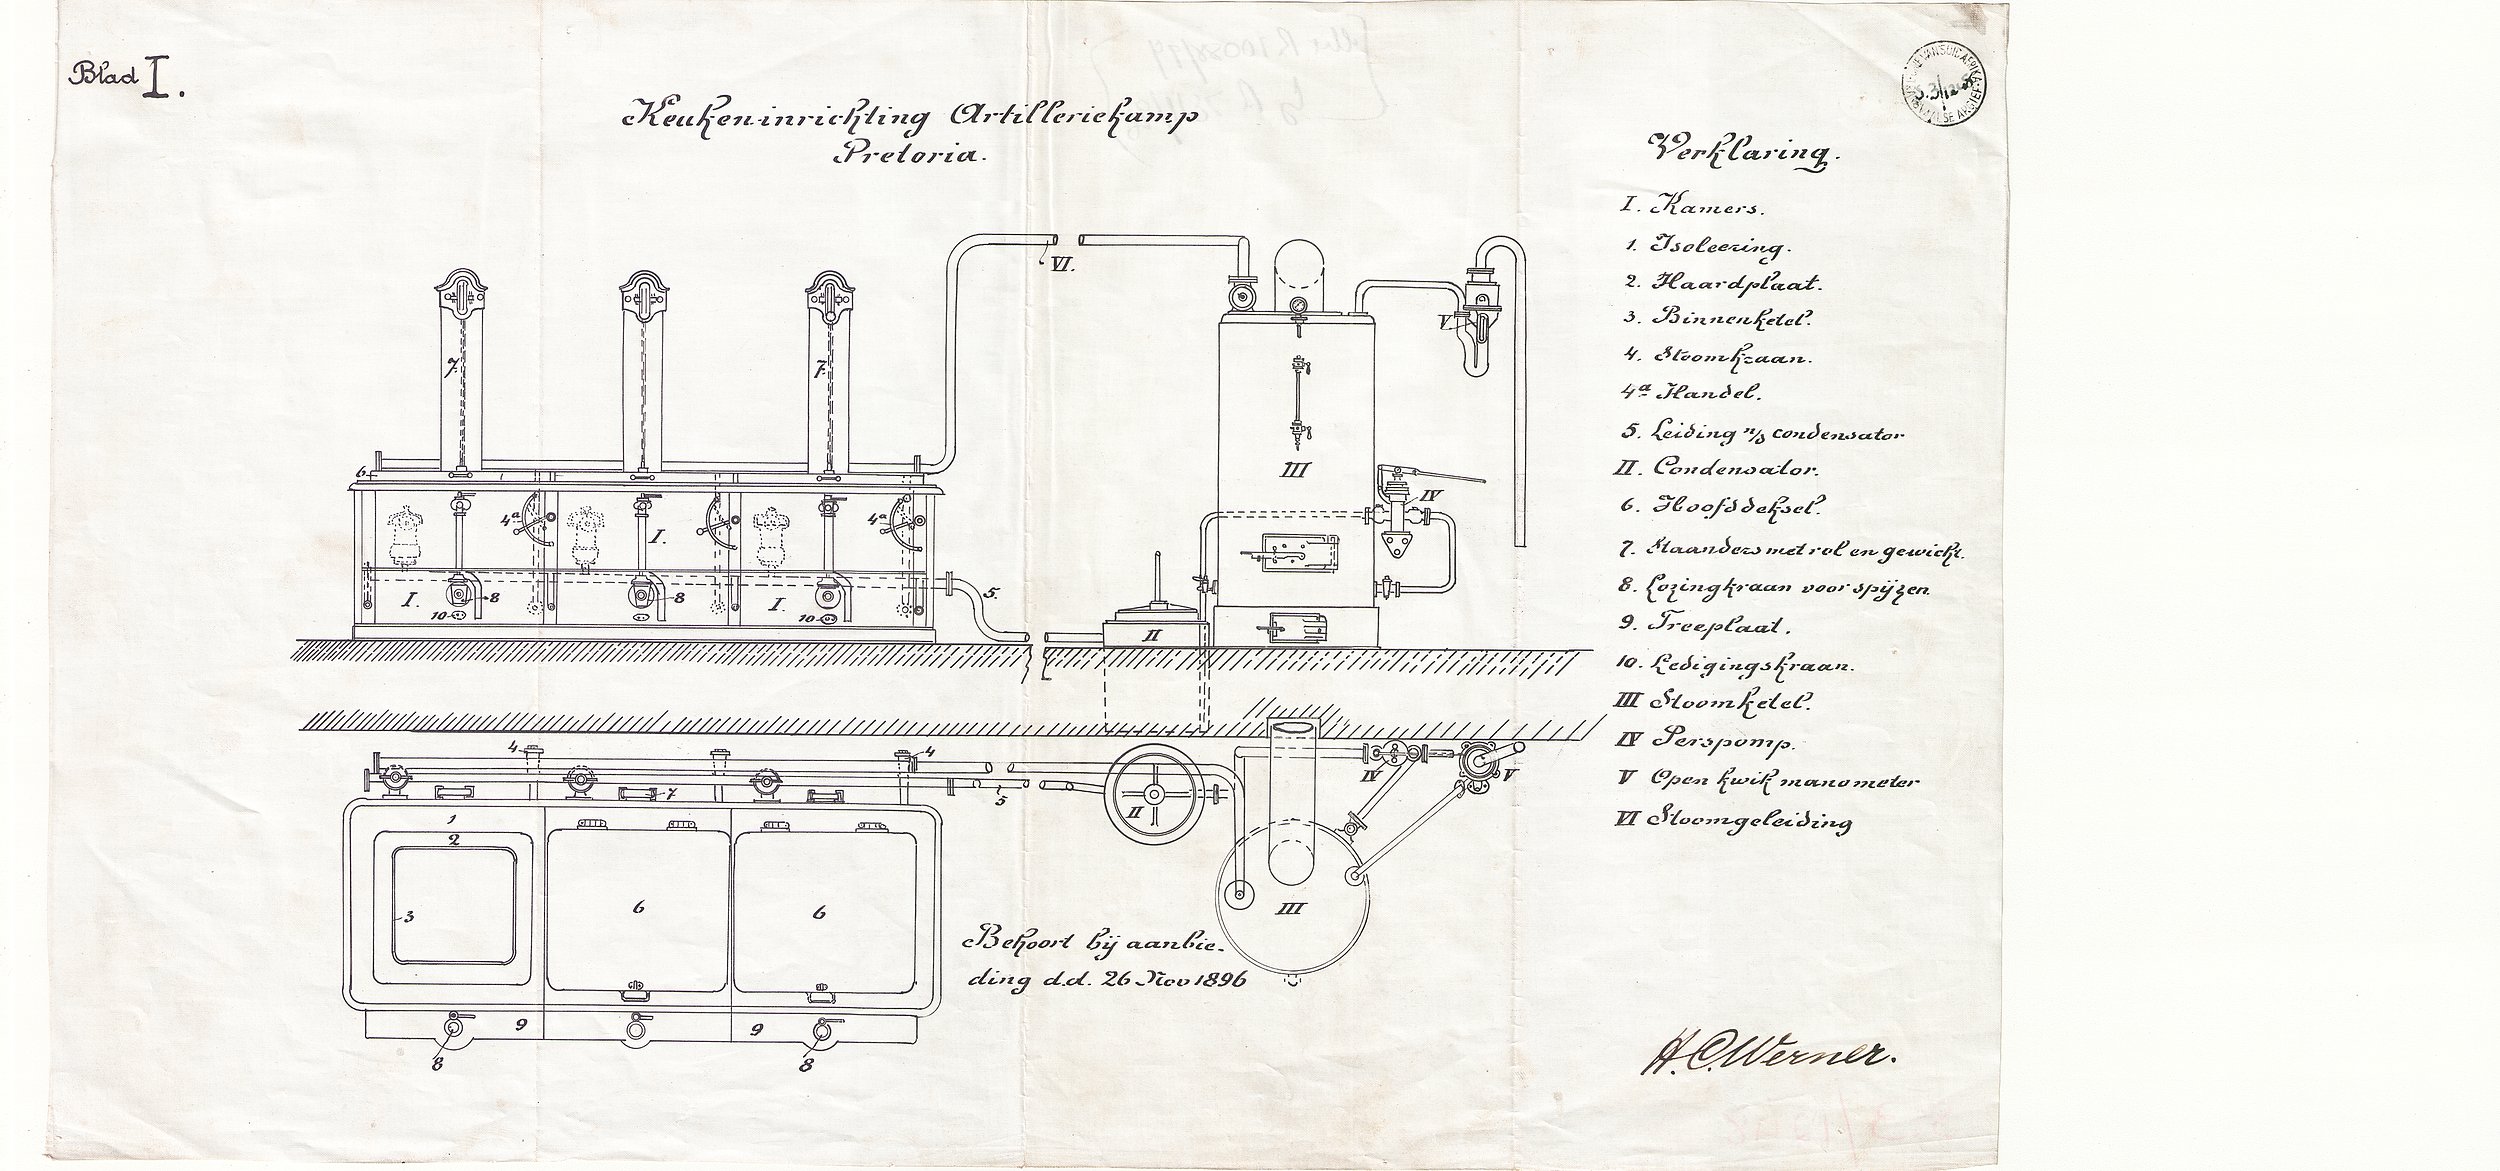 Blad I.
Keuken-inrichting Artilleriekamp
Pretoria.
Verklaring.
I. Kamers.
1. Isoleering.
2. Haardplaat.
3. Binnenketel.
4. Stoomkraan.
4a Handel.
5. Leiding n/d condensator
II. Condensator.
6. Hoofddeksel.
7. Staanders met rol en gewicht.
8. Lozingkraan voor spijzen.
9. Treeplaat.
10. Ledigingskraan.
III Stoomketel.
IV Perspomp.
V Open kwik manometer
VI Stoomgeleiding
VI.
V
7. 7.
III
6
IV
4a 4a
I.
5.
I. 8 8 I.
10 10
II
4 4
IV V
7 5 II
1
2
3 6 6
III
Behoort bij aanbie-
ding d.d. 26 Nov 1896
9 9
8 8
H.C. Werner.